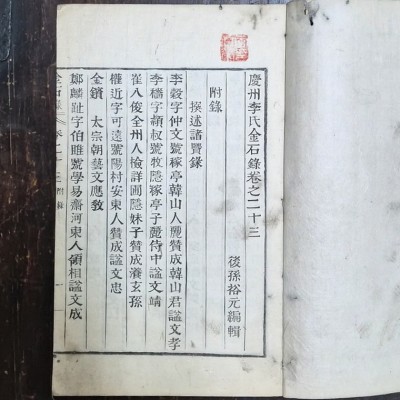 慶州李氏金石錄卷之二十三
後孫裕元編輯
附錄
撰述諸賢錄
李穀字仲文號稼亭韓山人麗贊成韓山君謚文孝
李穡字穎叔號牧隱稼亭子麗侍中謚文靖
崔八俊全州人檢詳圃隱妹子贊成瀁玄孫
權近字可遠號陽村安東人贊成謚文忠
金鑌 太宗朝藝文應教
鄭麟趾字伯雎號學易齋河東人領相謚文成
金石錄 卷二十三 附錄